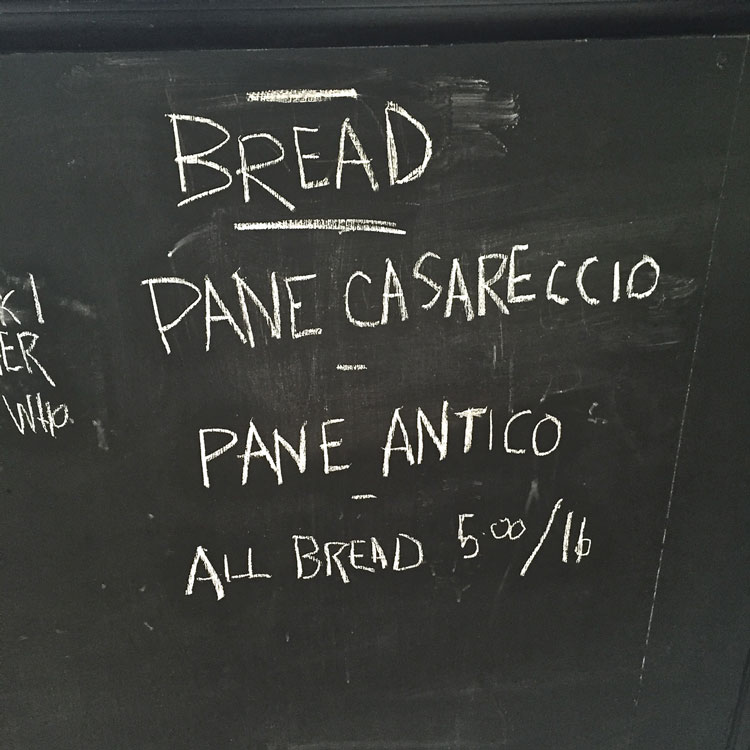 BREAD
PANE CASARECCIO
-
PANE ANTICO
-
ALL BREAD 5.00/lb
KI
ER
WHO